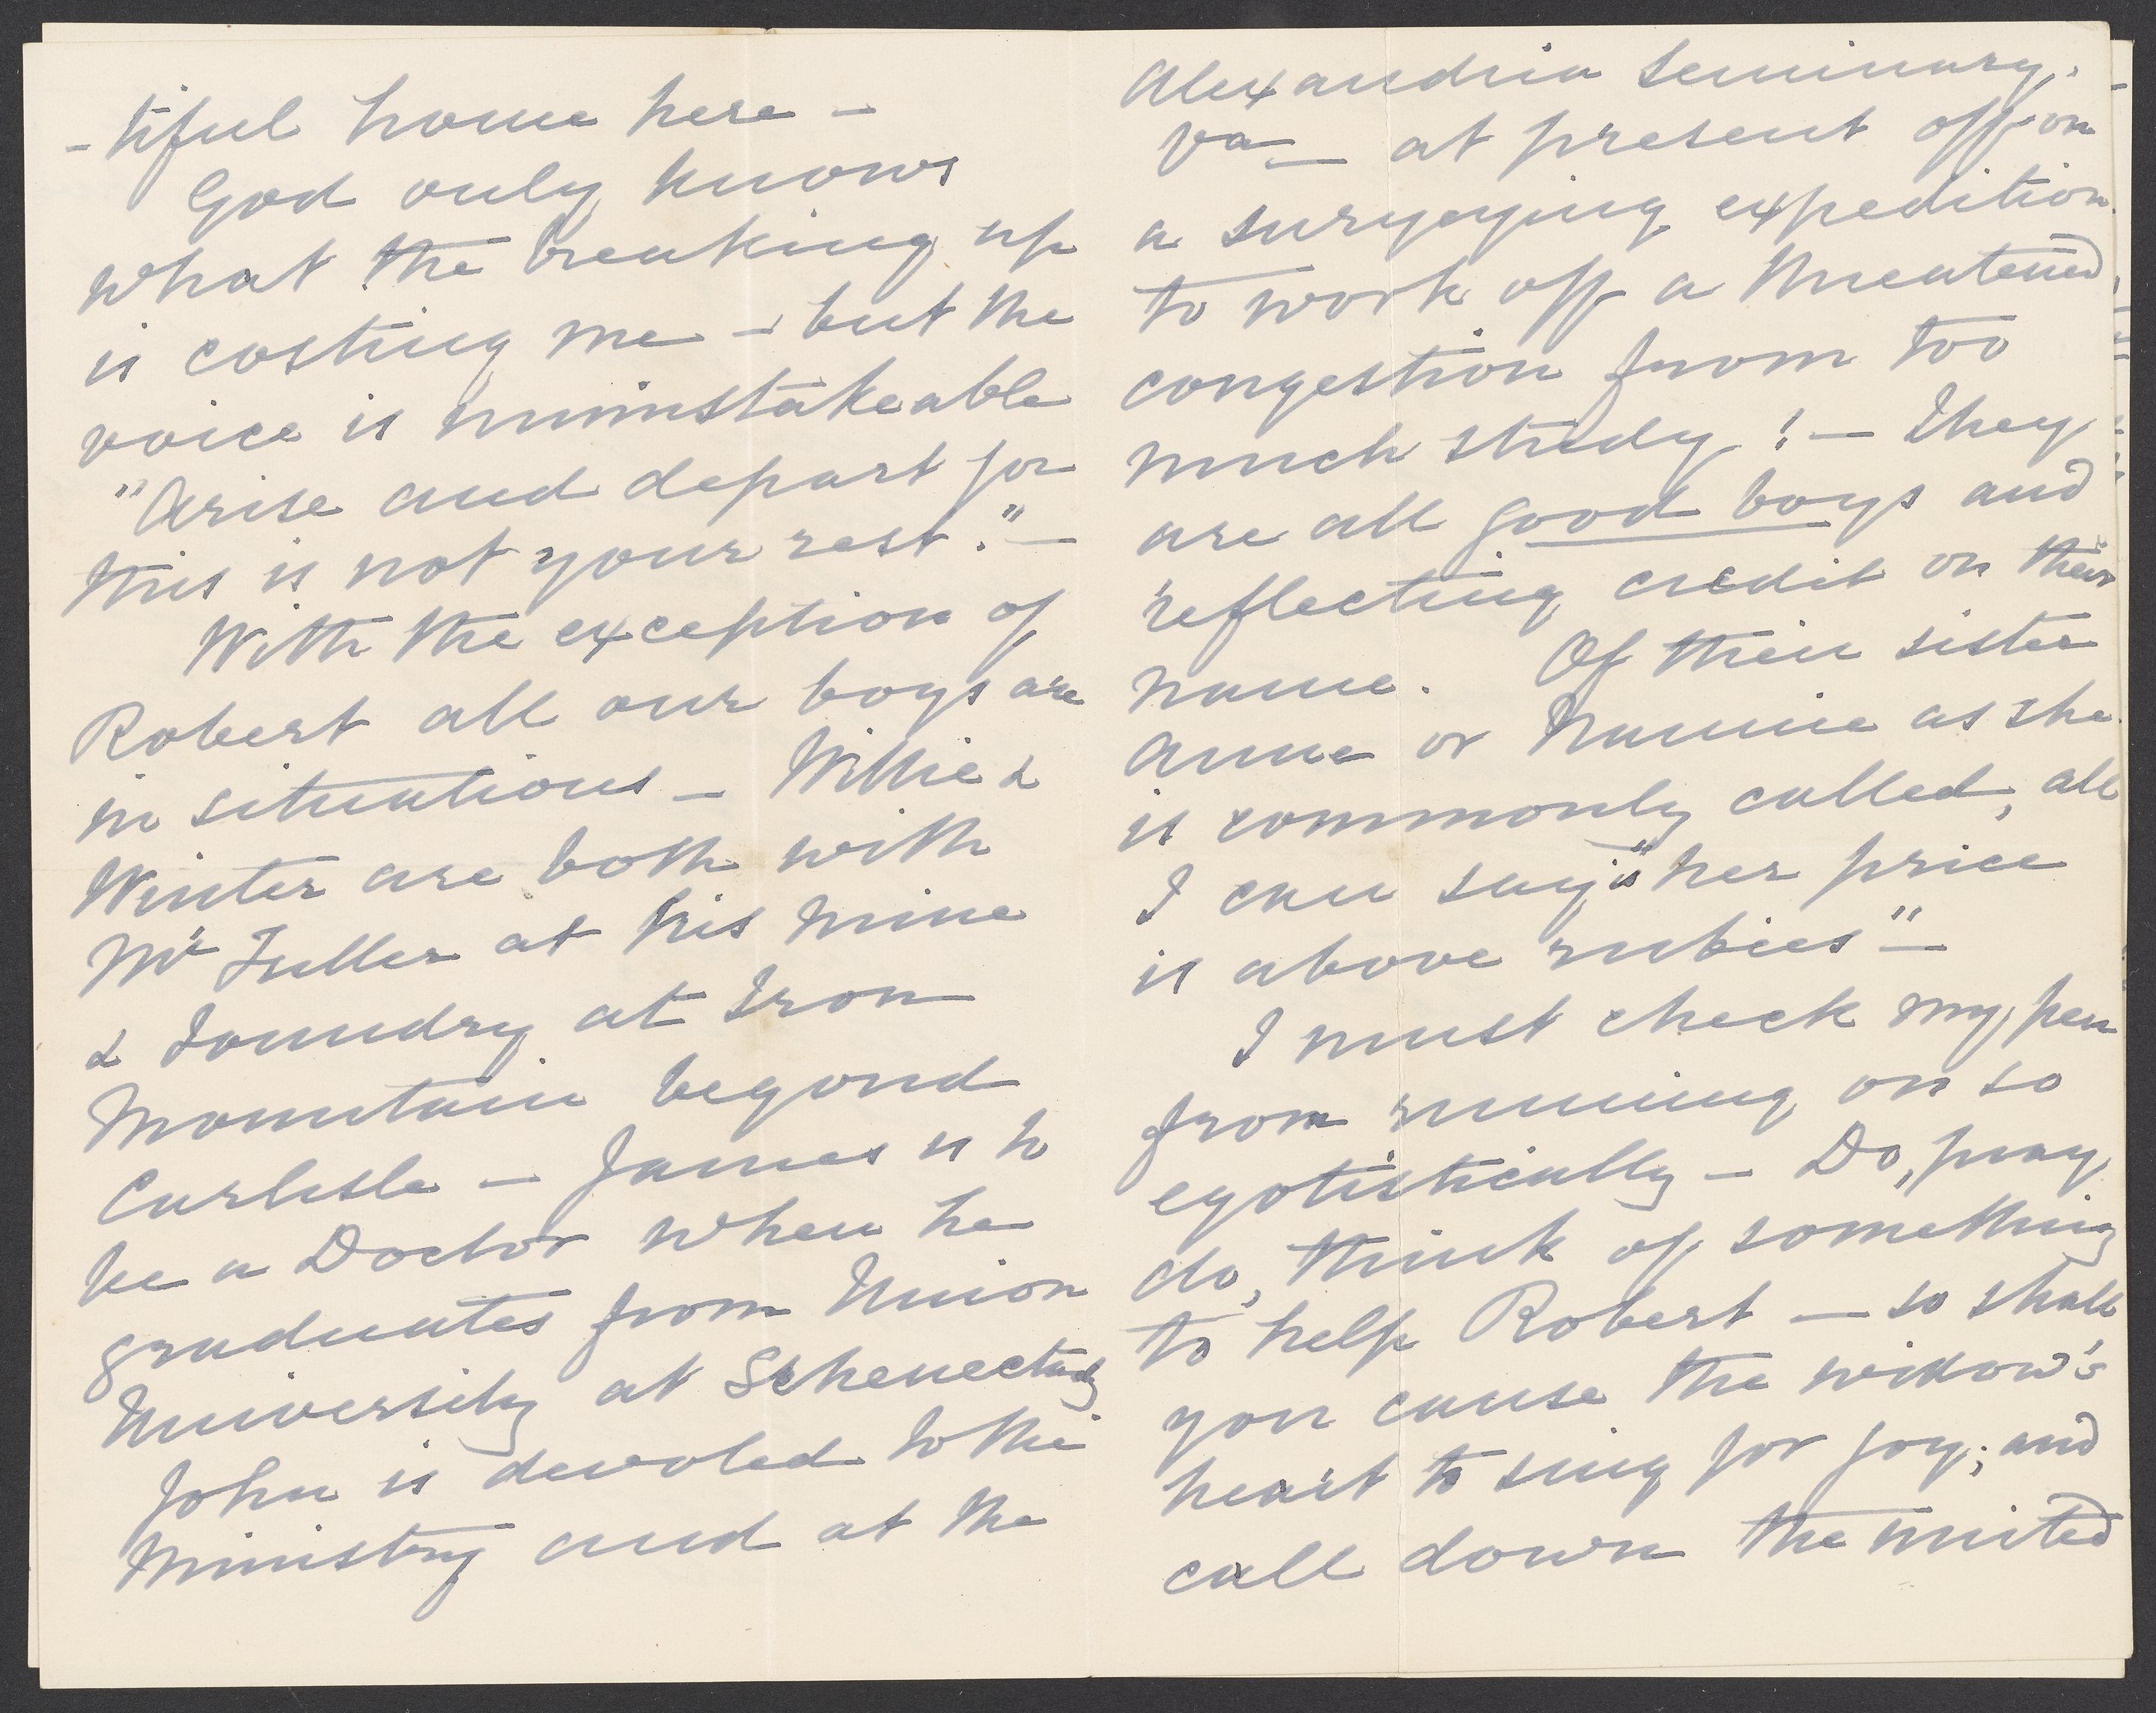 -tiful home here -
God only knows
what the breaking up
is costing me - but the
voice is unmistakeable
"Arise and depart for
this is not your rest." -
With the exception of
Robert all our boys are
in situations - Willie &
Winter are both with
Mr Fuller at his mine
& Foundry at Iron
Mountain beyond
Carlisle - James is to
be a Doctor when he
graduates from Union
University at Schenectady
John is devoted to the
Ministry and at the
Alexandria Seminary.
Va - at present off on
a surveying expedition
to work off a threatened
congestion from too
much study! - They
are all good boys and
reflecting credit on their
name. Of their sister
Anne or Nannie as she
is commonly called, all
I can say is "her price
is above rubies" -
I must check my pen
from running on so
egotistically - Do, pray
do, think of something
to help Robert - so shall
you cause the widow's
heart to sing for joy; and
call down the united